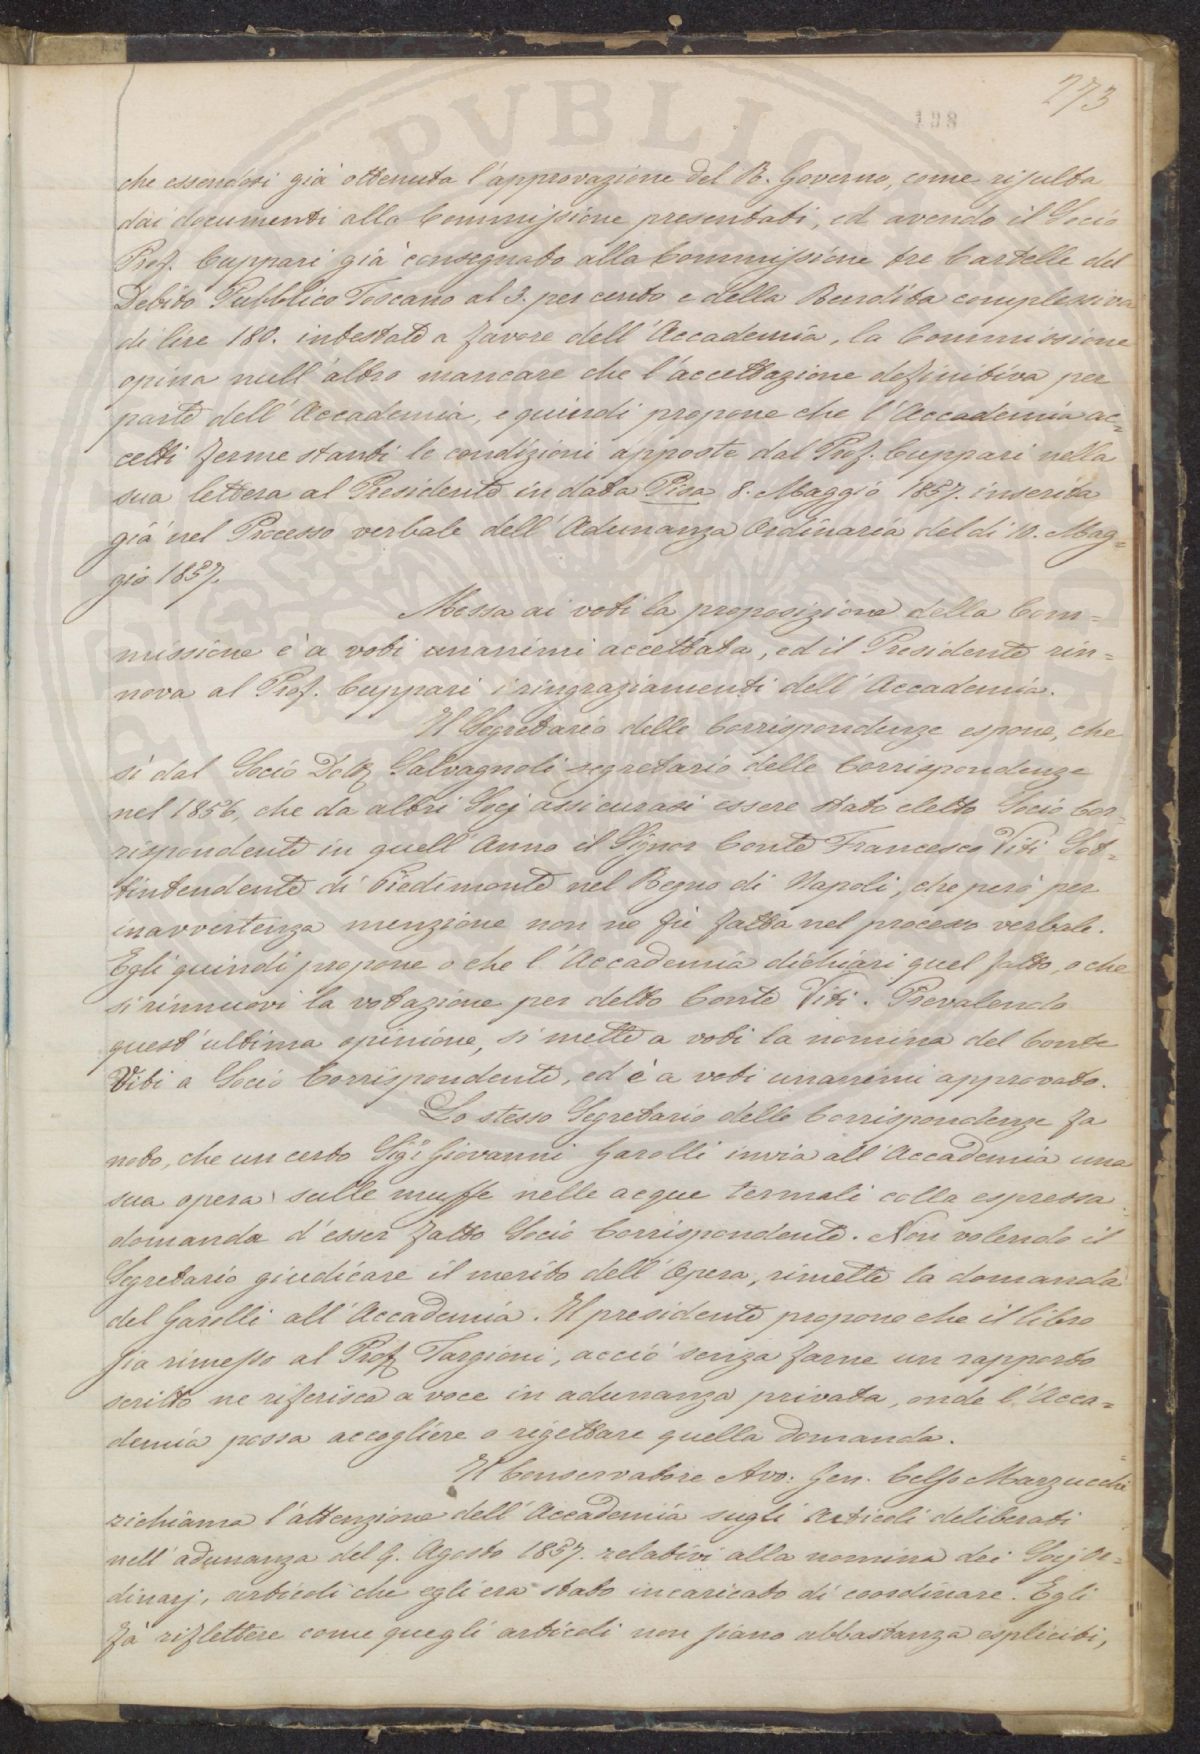 273
198
che essendosi già ottenuta l'approvazione del R. Governo, come risulta
dai documenti alla Commissione presentati, ed avendo il Socio
Prof. Cuppari già consegnato alla Commissione tre Cartelle del
Debito Pubblico Toscano al 3. per cento e della Rendita complessiva
di lire 180. intestate a favore dell'Accademia, la Commissione
opina null'altro mancare che l'accettazione definitiva per
parte dell'Accademia, e quindi propone che l'Accademia ac=
cetti ferme stanti le condizioni apposte dal Prof. Cuppari nella
sua lettera al Presidente in data Pisa 8. Maggio 1857. inserita
già nel Processo verbale dell'Adunanza Ordinaria del dì 10. Mag=
gio 1857.
Messa ai voti la proposizione della Com=
missione è a voti unanimi accettata, ed il Presidente rin=
nova al Prof. Cuppari i ringraziamenti dell'Accademia.
Il Segretario delle Corrispondenze espone, che
sì dal Socio Dott. Salvagnoli segretario delle Corrispondenze
nel 1856, che da altri Socj assicurasi essere stato eletto Socio Cor=
rispondente in quell'Anno il Signor Conte Francesco Viti Sot=
tintendente di Piedimonte nel Regno di Napoli, che però per
inavvertenza menzione non ne fù fatta nel processo verbale.
Egli quindi propone o che l'Accademia dichiari quel fatto, o che
si rinnuovi la votazione per detto Conte Viti. Prevalendo
quest'ultima opinione, si mette a voti la nomina del Conte
Viti a Socio Corrispondente, ed è a voti unanimi approvato.
Lo stesso Segretario delle Corrispondenze fa
noto, che un certo Sigr Giovanni Garelli invia all'Accademia una
sua opera sulle muffe nelle acque termali colla espressa
domanda d'esser fatto Socio Corrispondente. Non volendo il
Segretario giudicare il merito dell'Opera, rimette la domanda
del Garelli all'Accademia. Il presidente propone che il libro
sia rimesso al Prof. Targioni, acciò senza farne un rapporto
scritto ne riferisca a voce in adunanza privata, onde l'Acca=
demia possa accogliere o rigettare quella domanda.
Il Conservatore Avv. Gen. Celso Marzucchi
richiama l'attenzione dell'Accademia sugli Articoli deliberati
nell'adunanza del 9. Agosto 1857. relativi alla nomina dei Socj Or=
dinarj, articoli che egli era stato incaricato di coordinare. Egli
fà riflettere come quegli articoli non siano abbastanza espliciti,